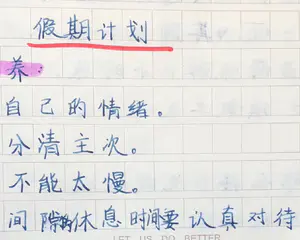 假期计划
养
自己的情绪。
分清主次。
不能太慢。
间隙的休息时间要认真对待
LET US DO BETTER